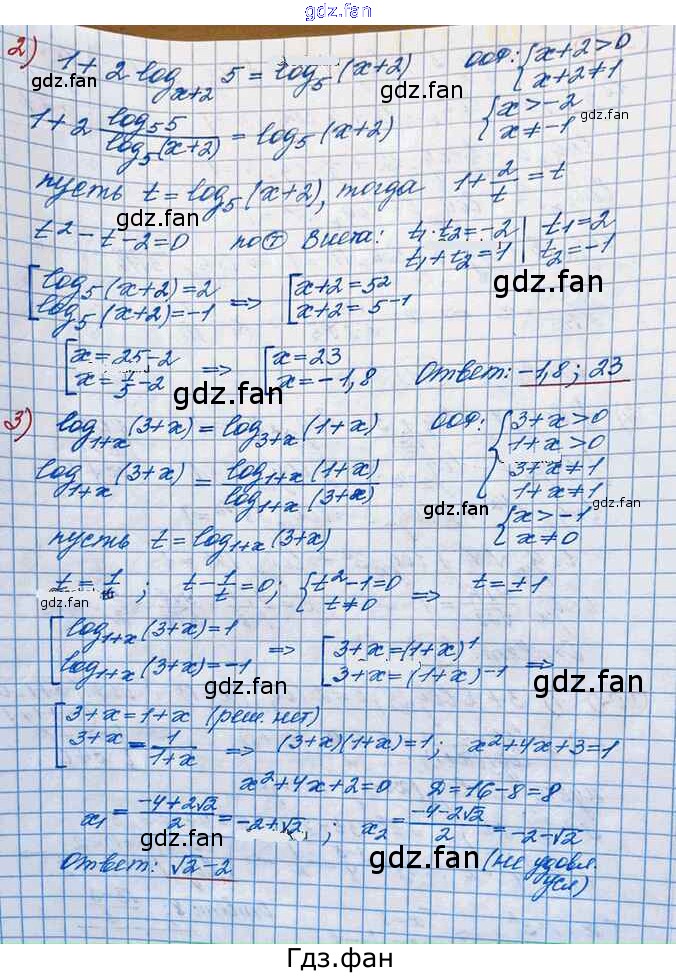 gdz.fan
2) 1 + 2 log_{x+2} 5 = log_5 (x+2) ООФ: { x+2 > 0
x+2 ≠ 1
gdz.fan gdz.fan
1 + 2 log_5 5 / log_5 (x+2) = log_5 (x+2) { x > -2
x ≠ -1
пусть t = log_5 (x+2), тогда 1 + 2/t = t
gdz.fan
t² - t - 2 = 0 по т Виета: t₁·t₂ = -2 | t₁ = 2
t₁ + t₂ = 1 | t₂ = -1
gdz.fan
[ log_5 (x+2) = 2 => [ x+2 = 5²
log_5 (x+2) = -1 x+2 = 5^{-1}
[ x = 25-2 => [ x = 23 Ответ: -1,8; 23
x = 1/5 - 2 x = -1,8
gdz.fan
3) log_{1+x} (3+x) = log_{3+x} (1+x) ООФ: { 3+x > 0
1+x > 0
3+x ≠ 1
1+x ≠ 1
log_{1+x} (3+x) = log_{1+x} (1+x) / log_{1+x} (3+x)
gdz.fan
{ x > -1
x ≠ 0
gdz.fan
пусть t = log_{1+x} (3+x)
t = 1/t; t - 1/t = 0; { t² - 1 = 0 => t = ±1
t ≠ 0
gdz.fan
[ log_{1+x} (3+x) = 1 => [ 3+x = (1+x)^1
log_{1+x} (3+x) = -1 3+x = (1+x)^{-1} =>
gdz.fan gdz.fan
[ 3+x = 1+x (реш. нет)
3+x = 1/(1+x) => (3+x)(1+x) = 1; x² + 4x + 3 = 1
x² + 4x + 2 = 0 D = 16 - 8 = 8
x₁ = (-4+2√2)/2 = -2+√2; x₂ = (-4-2√2)/2 = -2-√2
gdz.fan gdz.fan
(не удовл.
усл)
Ответ: √2 - 2
Гдз.фан